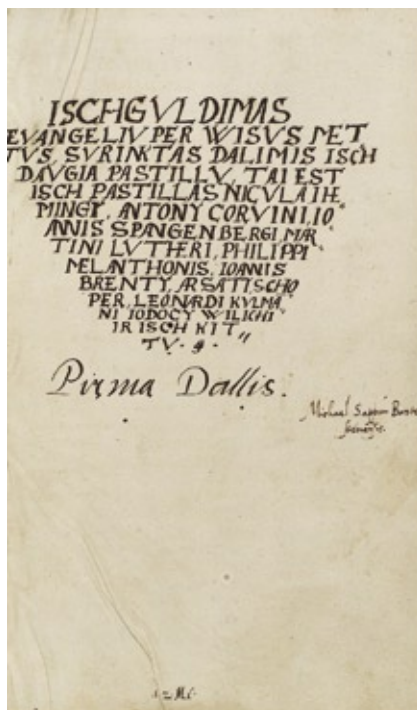 ISCHGVLDIMAS
EVANGELIV PER WISVS MET
TVS, SVRINKTAS DALIMIS ISCH
DAVGIA PASTILLV, TAI EST
ISCH PASTILLAS NICVLAI HE
MINGY, ANTONY CORVINI, IO
ANNIS SPANGENBERGI, MAR
TINI LVTHERI, PHILIPPI
MELANTHONIS, IOANNIS
BRENTY, ARSATI, SCHO
PER, LEONARDI KVLMA
NI IODOCY WILICHI
IR ISCH KIT
TV · 9 ·
Pirma Dallis.
Michael